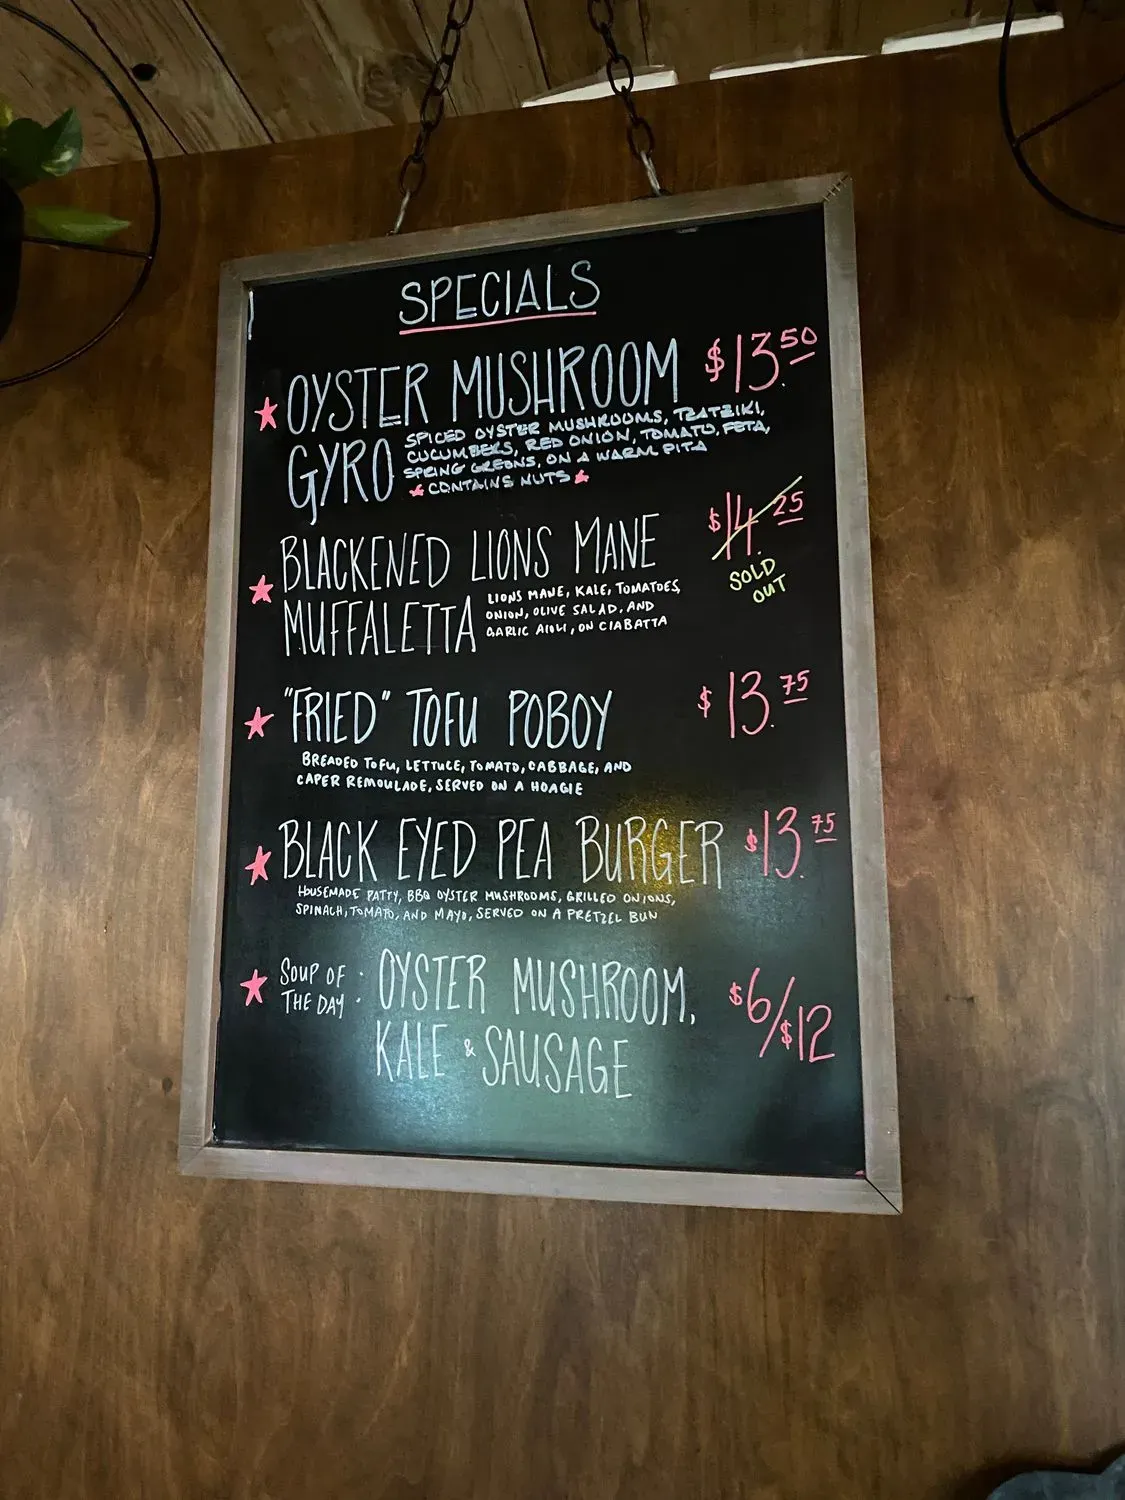 SPECIALS
OYSTER MUSHROOM $13.50
GYRO
SPICED OYSTER MUSHROOMS, TZATZIKI,
CUCUMBERS, RED ONION, TOMATO, FETA,
SPRING GREENS, ON A WARM PITA
CONTAINS NUTS
BLACKENED LIONS MANE $14.25
MUFFALETTA
SOLD
OUT
LIONS MANE, KALE, TOMATOES,
ONION, OLIVE SALAD, AND
GARLIC AIOLI, ON CIABATTA
"FRIED" TOFU POBOY $13.75
BREADED TOFU, LETTUCE, TOMATO, CABBAGE, AND
CAPER REMOULADE, SERVED ON A HOAGIE
BLACK EYED PEA BURGER $13.75
HOUSEMADE PATTY, BBQ OYSTER MUSHROOMS, GRILLED ONIONS,
SPINACH, TOMATO, AND MAYO, SERVED ON A PRETZEL BUN
SOUP OF
THE DAY :
OYSTER MUSHROOM, $6/$12
KALE & SAUSAGE